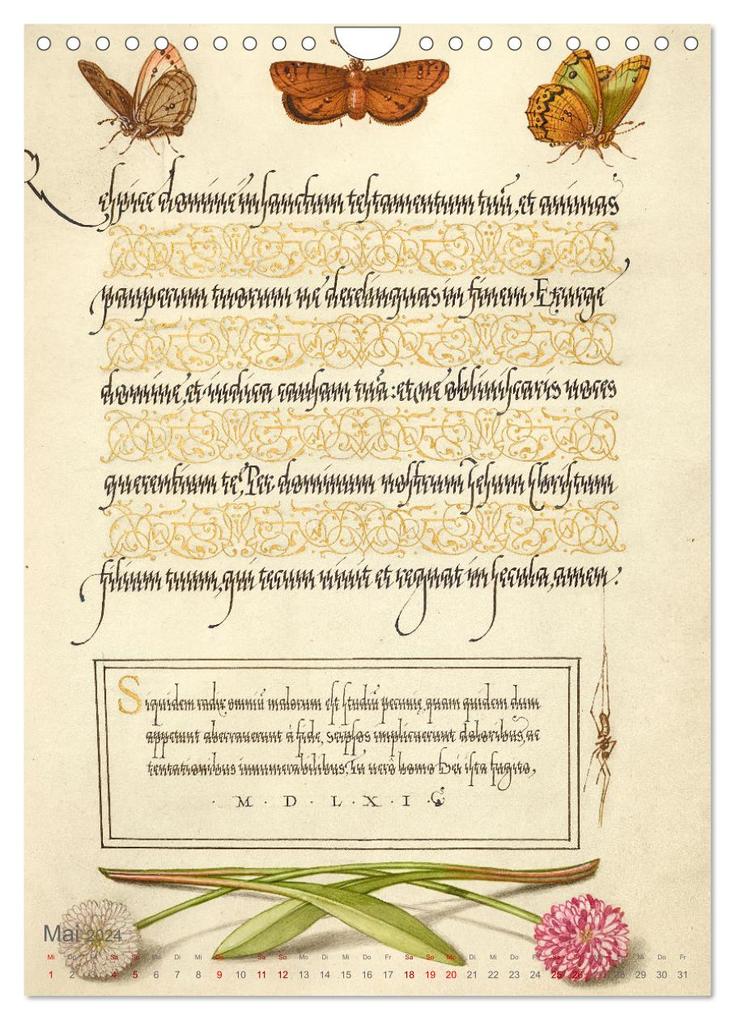 Respice domine in sanctum testamentum tuū, et animas
pauperum tuorum ne derelinquas in finem. Exurge
domine, et iudica causam tuā: et ne obliuiscaris uoces
querentium te. Per dominum nostrum Jesum Christum
filium tuum, qui tecum uiuit et regnat in secula, amen.
Siquidem radix omniū malorum est studiū pecunie, quam quidem dum
appetunt aberrauerunt á fide, seipsos implicuerunt doloribus, ac
tentationibus innumerabilibus, Tu uerò homo Dei ista fugito,
· M · D · L · X · I ·
Mai 2024
Mi Do Sa So Mo Di Mi Do Sa So Mo Di Mi Do Fr Sa So Mo Di Mi Do Fr Mo Di Mi Do Fr
1 2 4 5 6 7 8 9 10 11 12 13 14 15 16 17 18 19 20 21 22 23 24 25 26 28 29 30 31